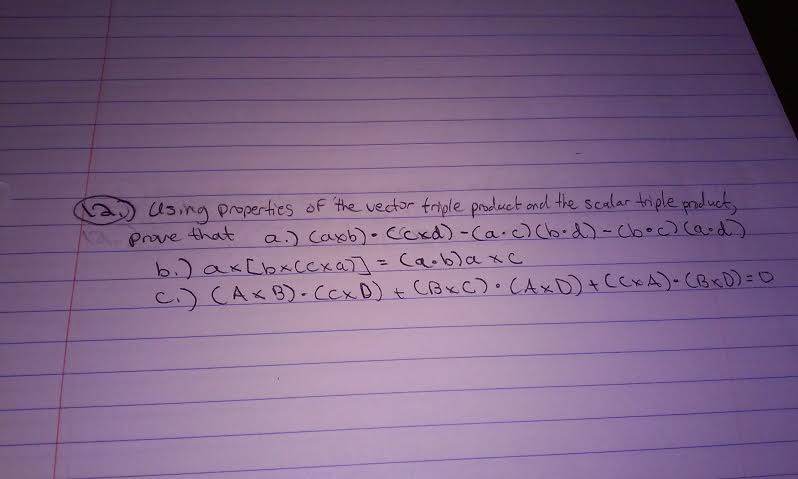 12.) Using properties of the vector triple product and the scalar triple product,
prove that a.) (axb)•(cxd)-(a•c)(b•d)-(b•c)(a•d)
b.) ax[bx(cxa)] = (a•b)axc
c.) (AxB)•(CxD)+(BxC)•(AxD)+(CxA)•(BxD)=0